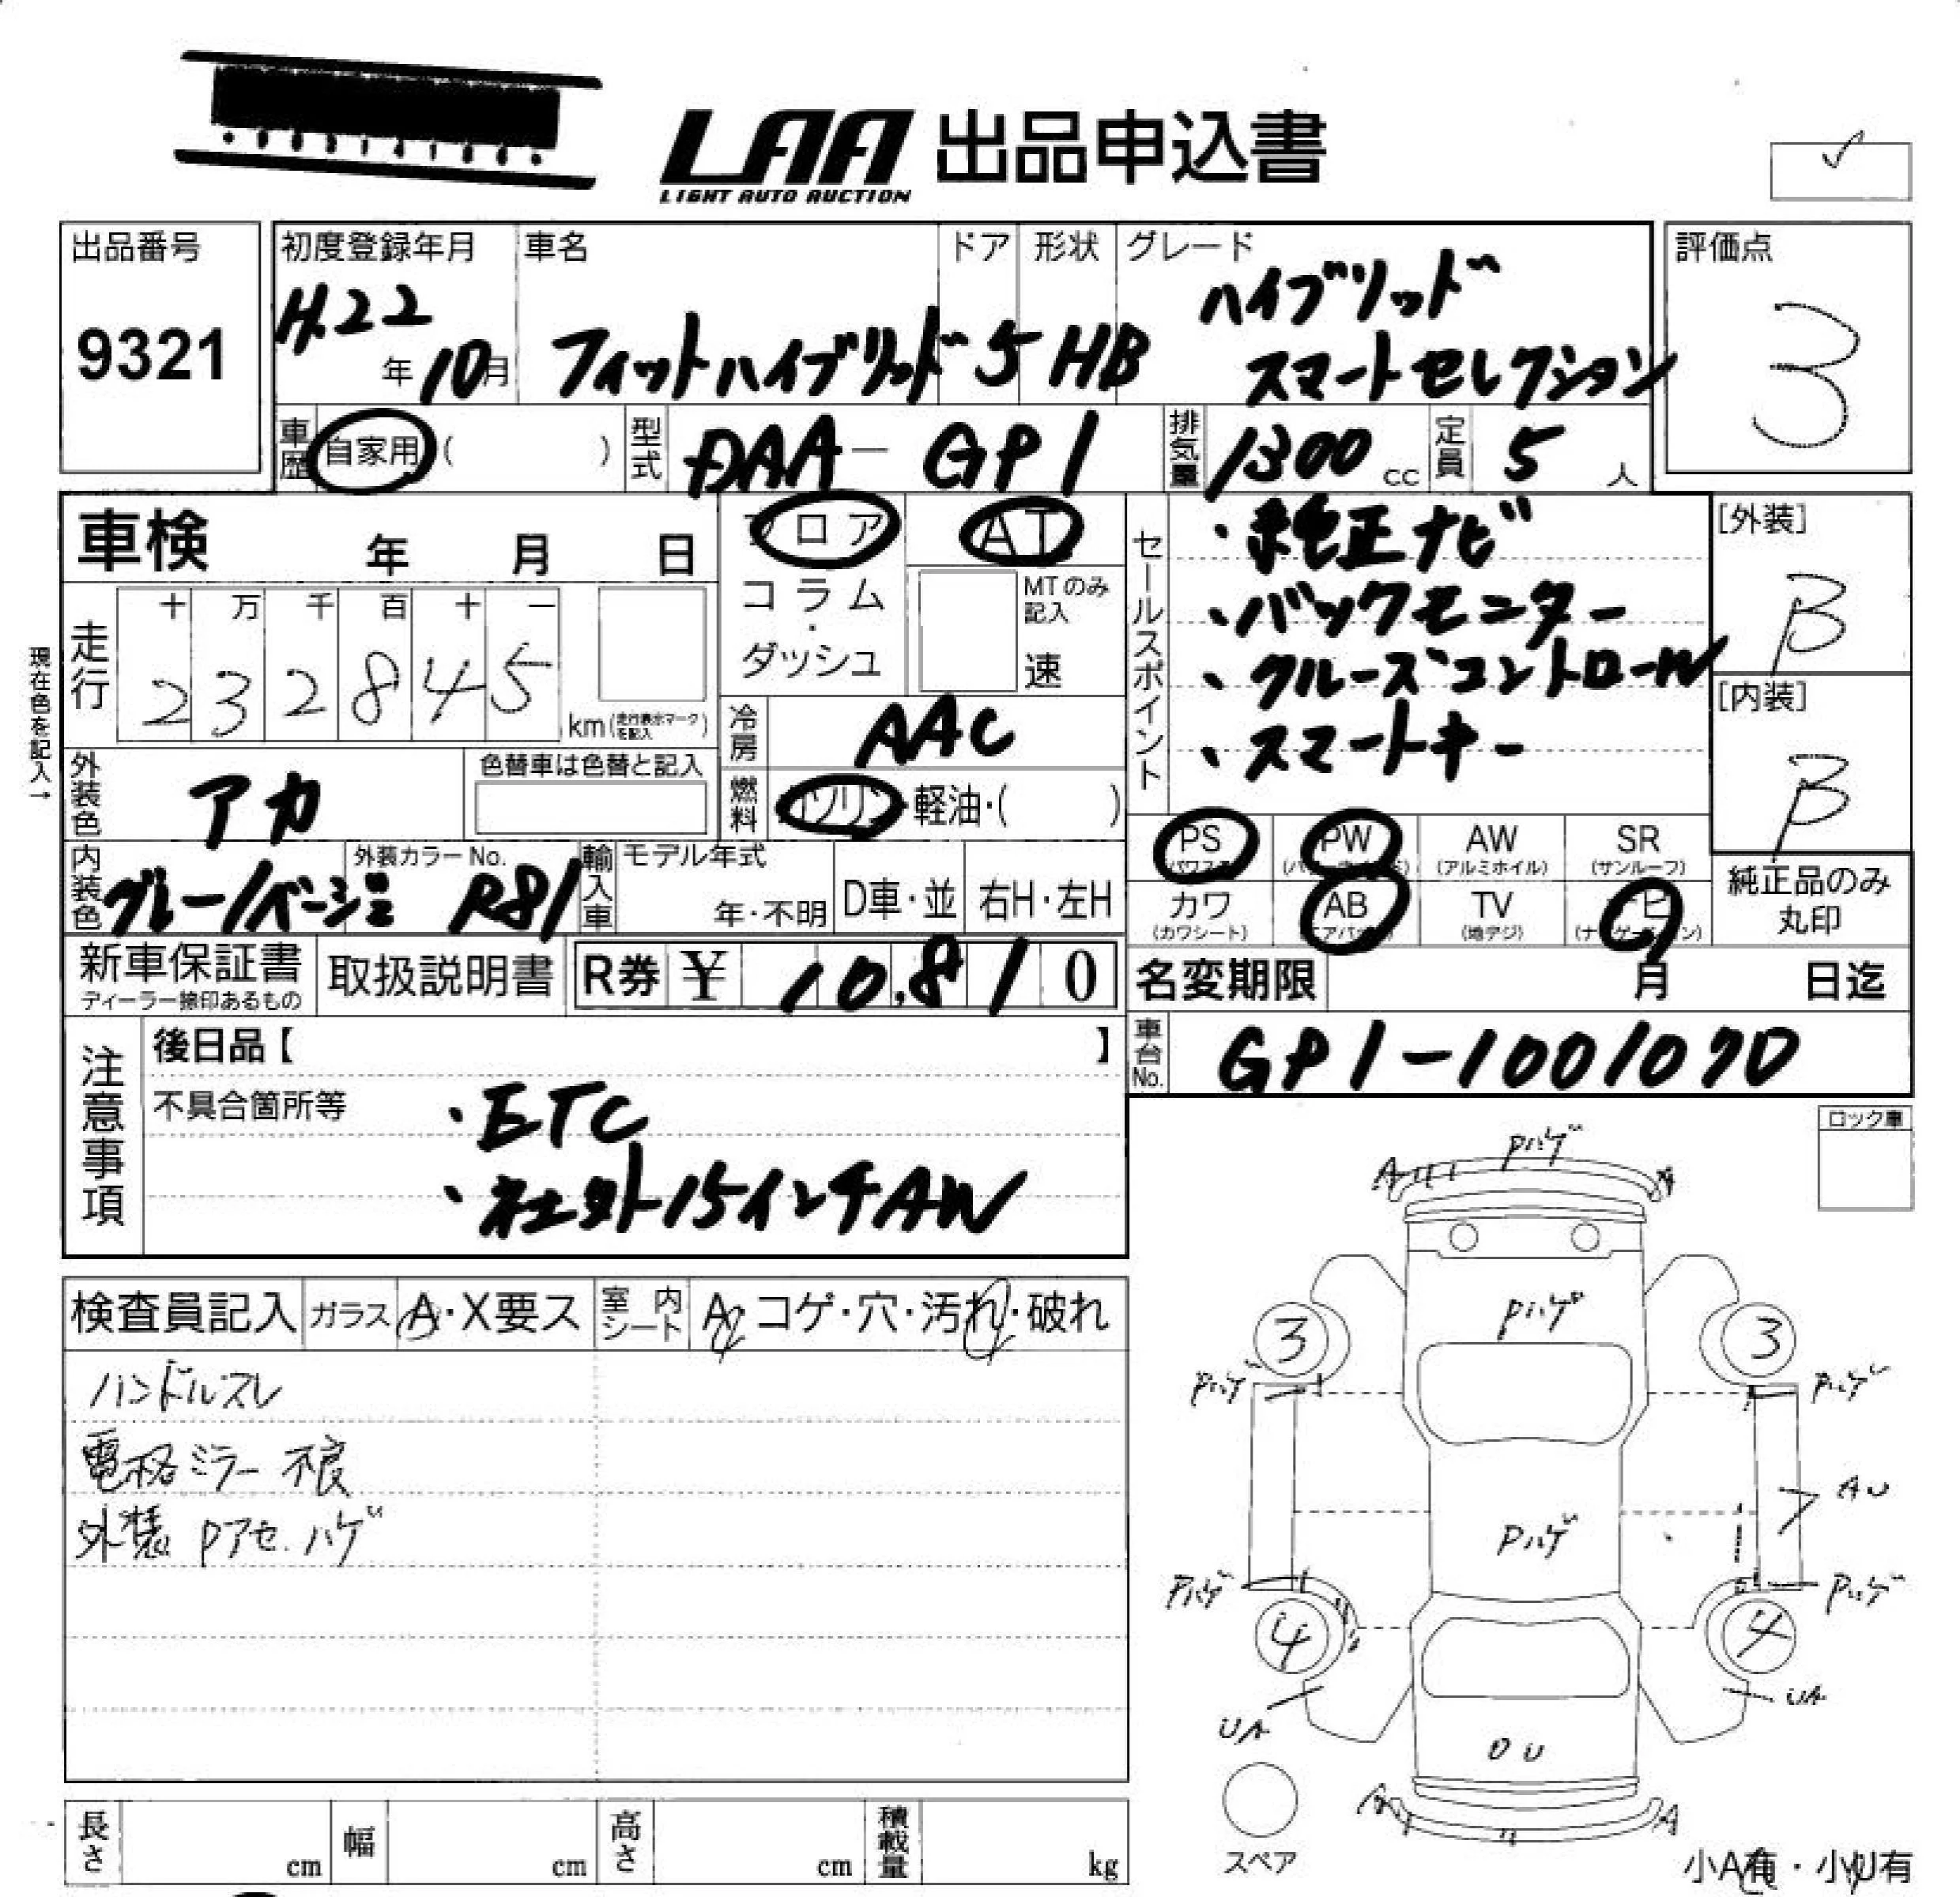 LAA 出品申込書
LIGHT AUTO AUCTION
出品番号
9321
初度登録年月
H.22年10月
車名
フィットハイブリッド
ドア
5
形状
HB
グレード
ハイブリッド
スマートセレクション
評価点
3
車歴
自家用( )
型式
DAA-GP1
排気量
1300cc
定員
5人
車検 年 月 日
走行
十 万 千 百 十 一
2 3 2 8 4 5
km(走行表示マークを記入)
現在色を記入→
フロア
コラム・ダッシュ
AT
MTのみ記入
速
冷房
AAC
燃料
ガソリン・軽油・( )
外装色
アカ
色替車は色替と記入
内装色
グレー/ベージュ
外装カラーNo.
R81
輸入車
モデル年式
年・不明
D車・並
右H・左H
セールスポイント
・純正ナビ
・バックモニター
・クルーズコントロール
・スマートキー
[外装]
B
[内装]
B
PS
(パワステ)
PW
AW
(アルミホイル)
SR
(サンルーフ)
カワ
(カワシート)
AB
(エアバッグ)
TV
(地デジ)
ナビ
(ナビゲーション)
純正品のみ
丸印
新車保証書
ディーラー捺印あるもの
取扱説明書
R券 ¥ 10,810
名変期限 月 日迄
車台No.
GP1-1001070
注意事項
後日品【 】
不具合箇所等
・ETC
・社外15インチAW
ロック車
検査員記入
ガラス
A・X要ス
室内シート
A・コゲ・穴・汚れ・破れ
ハンドルスレ
電格ミラー不良
外装 Pアセ.ハゲ
Pハゲ
A
A
Pハゲ
3
3
Pハゲ
Pハゲ
AU
Pハゲ
Pハゲ
Pハゲ
4
4
UA
UA
A
A
スペア
小A有・小U有
長さ cm
幅 cm
高さ cm
積載量 kg